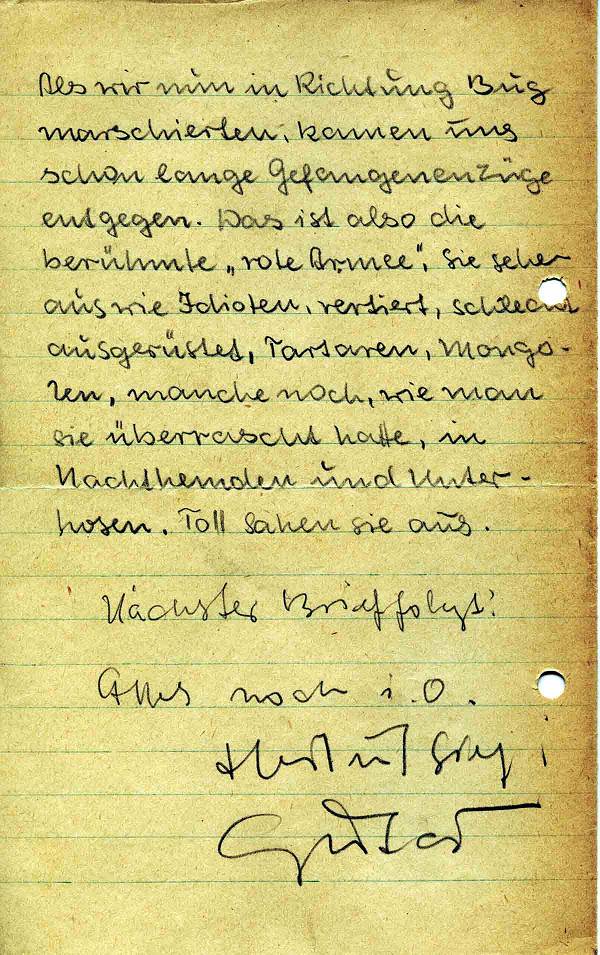 Als wir nun in Richtung Bug
marschierten, kamen uns
schon lange Gefangenenzüge
entgegen. Das ist also die
berühmte „rote Armee“. Sie sehen
aus wie Idioten, vertiert, schlecht
ausgerüstet, Tartaren, Mongo-
len, manche noch, wie man
sie überrascht hatte, in
Nachthemden und Unter-
hosen. Toll sahen sie aus.
Nächster Brief folgt!
Alles noch i.O.